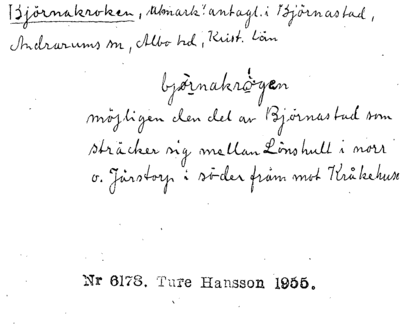 Björnakroken, utmark? antagl. i Björnastad,
Andrarums sn, Albo hd, Krist. län
bjö̱rnakrȯ́gen
möjligen den del av Björnastad som
sträcker sig mellan Lönshult i norr
o. Järstorp i söder fram mot Kråkehus
Nr 6178. Ture Hansson 1955.